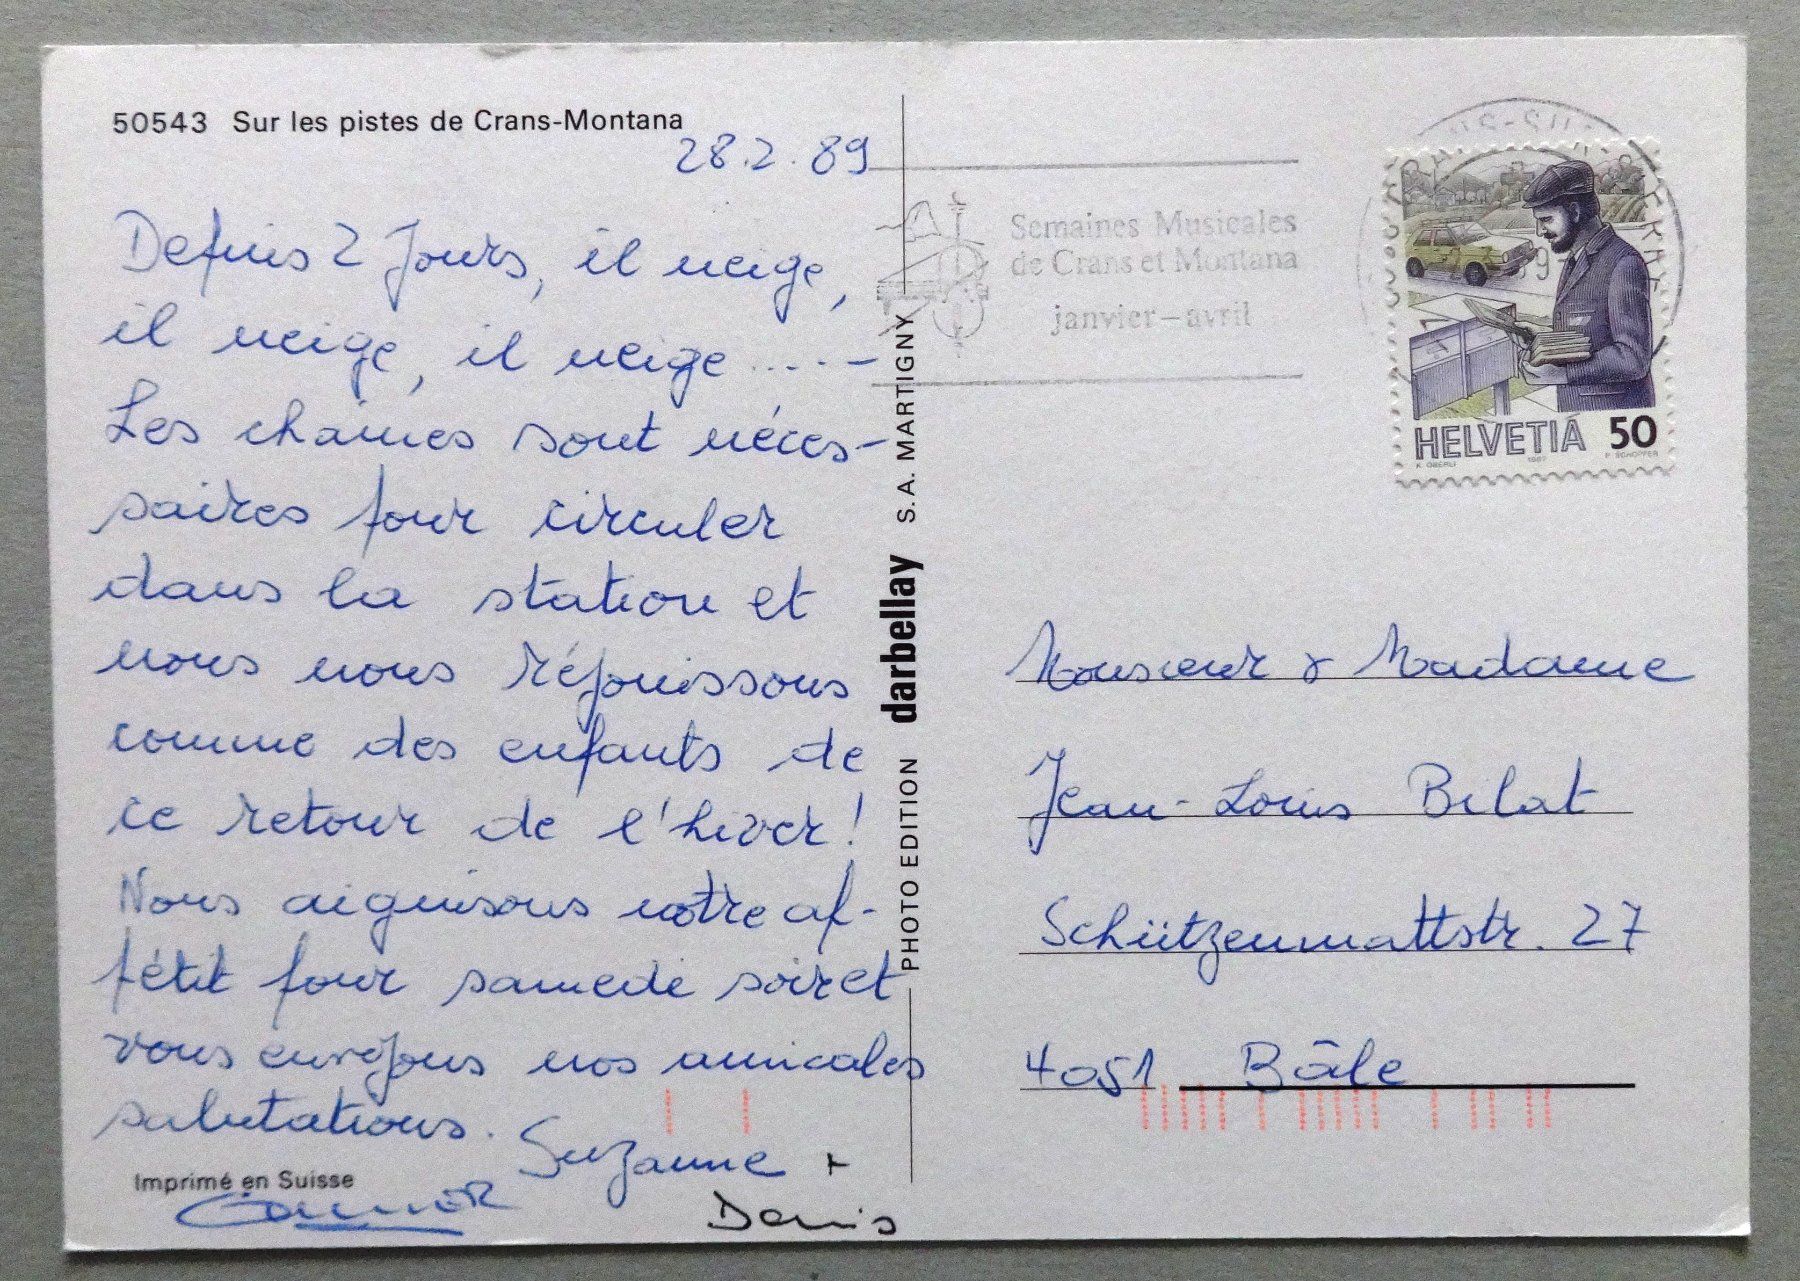 50543 Sur les pistes de Crans-Montana
28.2.89
Depuis 2 Jours, il neige,
il neige, il neige .... -
Les chaines sont néces-
saires pour circuler
dans la station et
nous nous réjouissons
comme des enfants de
ce retour de l'hiver!
Nous aiguisons notre ap-
pétit pour samedi soir et
vous envoyons nos amicales
salutations.
Suzanne +
Denis
Imprimé en Suisse
PHOTO EDITION darbellay S.A. MARTIGNY
Semaines Musicales
de Crans et Montana
janvier–avril
HELVETIA 50
K. OBERLI 1987 P. SCHOPFER
Monsieur & Madame
Jean-Louis Bilat
Schützenmattstr. 27
4051 Bâle